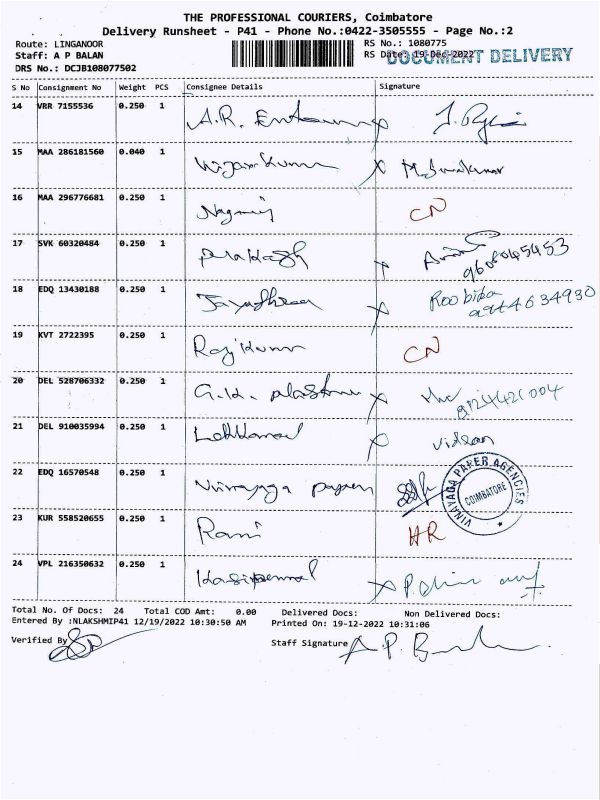 THE PROFESSIONAL COURIERS, Coimbatore
Delivery Runsheet - P41 - Phone No.:0422-3505555 - Page No.:2
Route: LINGANOOR RS No.: 1080775
Staff: A P BALAN RS Date: 19-Dec-2022
DOCUMENT DELIVERY
DRS No.: DCJB108077502
S No Consignment No Weight PCS Consignee Details Signature
14 VRR 7155536 0.250 1 A.R.
15 MAA 286181560 0.040 1
16 MAA 296776681 0.250 1 CN
17 SVK 60320484 0.250 1 Prakash
18 EDQ 13430188 0.250 1 Roobika
9944634930
19 KVT 2722395 0.250 1 Rajkumar CN
20 DEL 528706332 0.250 1 G.K.
21 DEL 910035994 0.250 1
22 EDQ 16570548 0.250 1
VINAYAGA PAPER AGENCIES
COIMBATORE
23 KUR 558520655 0.250 1 Rani HR
24 VPL 216350632 0.250 1
Total No. Of Docs: 24 Total COD Amt: 0.00 Delivered Docs: Non Delivered Docs:
Entered By :NLAKSHMIP41 12/19/2022 10:30:50 AM Printed On: 19-12-2022 10:31:06
Verified By Staff Signature